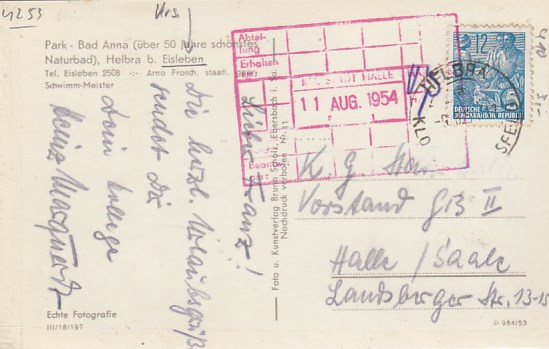 4253
Urs.
Park - Bad Anna (über 50 Jahre schönstes
Naturbad), Helbra b. Eisleben
Tel. Eisleben 2508 Arno Frosch, staatl. gepr.
Schwimm-Meister
Lieber Franz!
Die herzl. Urlaubsgrüße
sendet Dir
Dein Kollege
Heinz
Echte Fotografie
III/18/197
Foto u. Kunstverlag Bruno Scholz, Ebersbach i. Sa.
Nachdruck verboten Nr. 11
Abtei-
lung
Erhalten
RAT D. STADT HALLE
11 AUG. 1954
HELBRA
KLO
SFELD
12
DEUTSCHE
DEMOKRATISCHE REPUBLIK
K. G.
Vorstand GIB II
Halle / Saale
Landsberger Str. 13-15
D 984/53